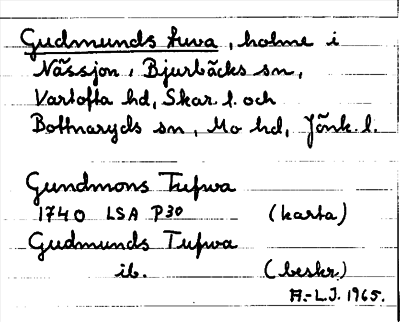 Gudmunds tuva, holme i
Nässjön, Bjurbäcks sn,
Vartofta hd, Skar. l. och
Bottnaryds sn, Mo hd, Jönk. l.
Gundmons Tufwa
1740 LSA P30 (karta)
Gudmunds Tufwa
ib. (beskr)
A.-L.J. 1965.